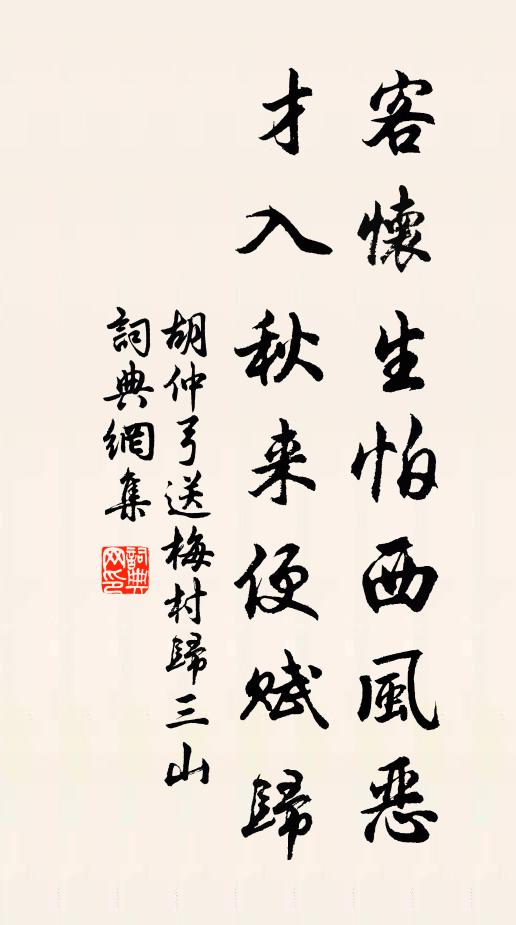 客懷生怕西風惡
才入秋来便賦歸
胡仲弓送梅村歸三山
詞典網集
詞典
网印